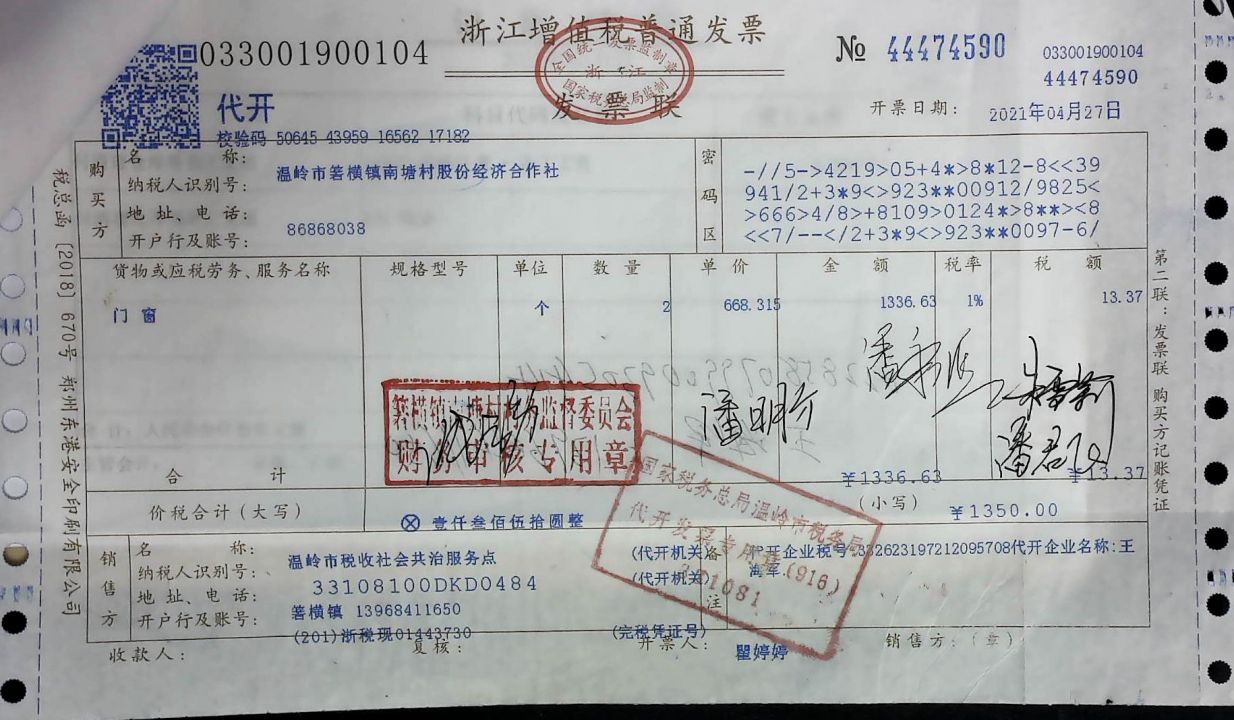 浙江增值税普通发票
033001900104
№ 44474590
033001900104
44474590
全国统一发票监制章
浙江
国家税务总局监制
代开
发票联
开票日期: 2021年04月27日
校验码 50645 43959 16562 17182
购买方
名 称: 温岭市箬横镇南塘村股份经济合作社
纳税人识别号:
地址、电话: 86868038
开户行及账号:
密码区
-//5->4219>05+4*>8*12-8<<39
941/2+3*9<>923**00912/9825<
>666>4/8>+8109>0124*>8**><8
<<7/--</2+3*9<>923**0097-6/
货物或应税劳务、服务名称 规格型号 单位 数量 单价 金额 税率 税额
门窗 个 2 668.315 1336.63 1% 13.37
箬横镇南塘村村务监督委员会
财务审核专用章
潘明方
合计 ¥1336.63 ¥13.37
价税合计(大写) ⊗ 壹仟叁佰伍拾圆整 (小写) ¥1350.00
销售方
名 称: 温岭市税收社会共治服务点 (代开机关)
纳税人识别号: 33108100DKD0484 (代开机关)
地址、电话: 箬横镇 13968411650
开户行及账号: (201)浙税现01443730 (完税凭证号)
备注
代开企业税号:332623197212095708代开企业名称:王
海军
国家税务总局温岭市税务局
代开发票专用章(916)
331081
收款人: 复核: 开票人: 瞿婷婷 销售方:(章)
税总函〔2018〕670号 郑州东港安全印刷有限公司
第二联:发票联 购买方记账凭证